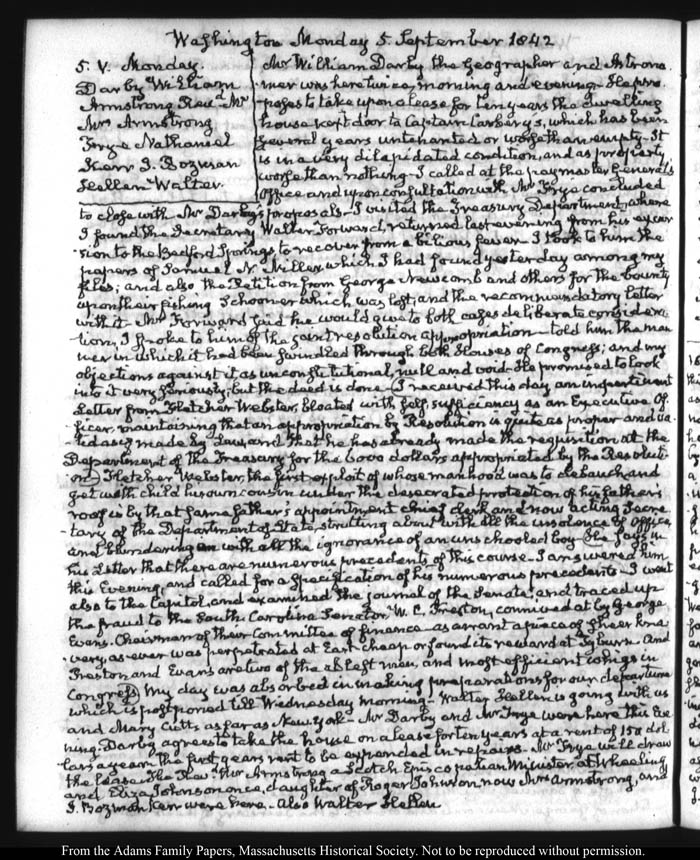 Washington Monday 5. September 1842
5. V. Monday.
Darby William
Armstrong Revd. Mr
Mrs Armstrong
Frye Nathaniel
Kerr J. Bozman
Hellen Walter.
Mr William Darby the Geographer and Astrono-
mer was here twice, morning and evening. He pro-
poses to take upon a lease for ten years the dwelling
house next door to Captain Carbery's, which has been
several years untenanted or worse than empty. It
is in a very dilapidated condition, and as property,
worse than nothing. I called at the paymaster General's
Office and upon consultation with Mr Frye concluded
to close with Mr Darby's proposals. I visited the Treasury Department, where
I found the Secretary Walter Forward, returned last evening from his excur-
sion to the Bedford Springs to recover from a bilious fever. I took to him the
papers of Samuel N. Miller, which I had found yesterday among my
files; and also the Petition from George Newcomb and others for the bounty
upon their fishing Schooner which was lost, and the recommendatory letter
with it. Mr Forward said he would give to both cases deliberate considera-
tion. I spoke to him of the joint resolution appropriation told him the man-
ner in which it had been swindled through both Houses of Congress; and my
objections against it as unconstitutional, null and void. He promised to look
into it very seriously; but the deed is done. I received this day an impertinent
Letter from Fletcher Webster, bloated with self sufficiency as an Executive Of-
ficer, maintaining that an appropriation by Resolution is quite as proper and
as if made by Law, and that he has already made the requisition at the
Department of the Treasury for the 6000 dollars appropriated by the Resoluti-
on. Fletcher Webster, the first exploit of whose manhood was to debauch and
get with child his own cousin under the desecrated protection of his father's
roof is by that same father's appointment chief clerk and now acting Secre-
tary of the Department of State, strutting about with all the insolence of Office,
and blundering on with all the ignorance of an unschooled boy. He says in
his Letter that there are numerous precedents of this course. I answered him
this Evening, and called for a specification of his numerous precedents. I went
also to the Capitol, and examined the journal of the Senate, and traced up
the fraud to the South Carolina Senator, W. C. Preston, connived at by George
Evans. Chairman of their Committee of finance as arrant a piece of sheer kna-
very, as ever was perpetrated at East cheap or found its reward at Tyburn. And
Preston and Evans are two of the ablest men, and most efficient whigs in
Congress. My day was absorbed in making preparations for our departure
which is postponed till Wednesday morning. Walter Hellen is going with us
and Mary Cutts as far as New York. Mr Darby and Mr Frye were here this Eve-
ning. Darby agrees to take the house on a lease for ten years at a rent of 150 dol-
lars a year. The first years rent to be expended in repairs. Mr Frye will draw
the lease. The Revd. Mr Armstrong a Scotch Episcopalian Minister, at Wheeling
and Eliza Johnson once, daughter of Roger Johnson, now Mrs Armstrong, and
J. Bozman Kerr were here. Also Walter Hellen
From the Adams Family Papers, Massachusetts Historical Society. Not to be reproduced without permission.